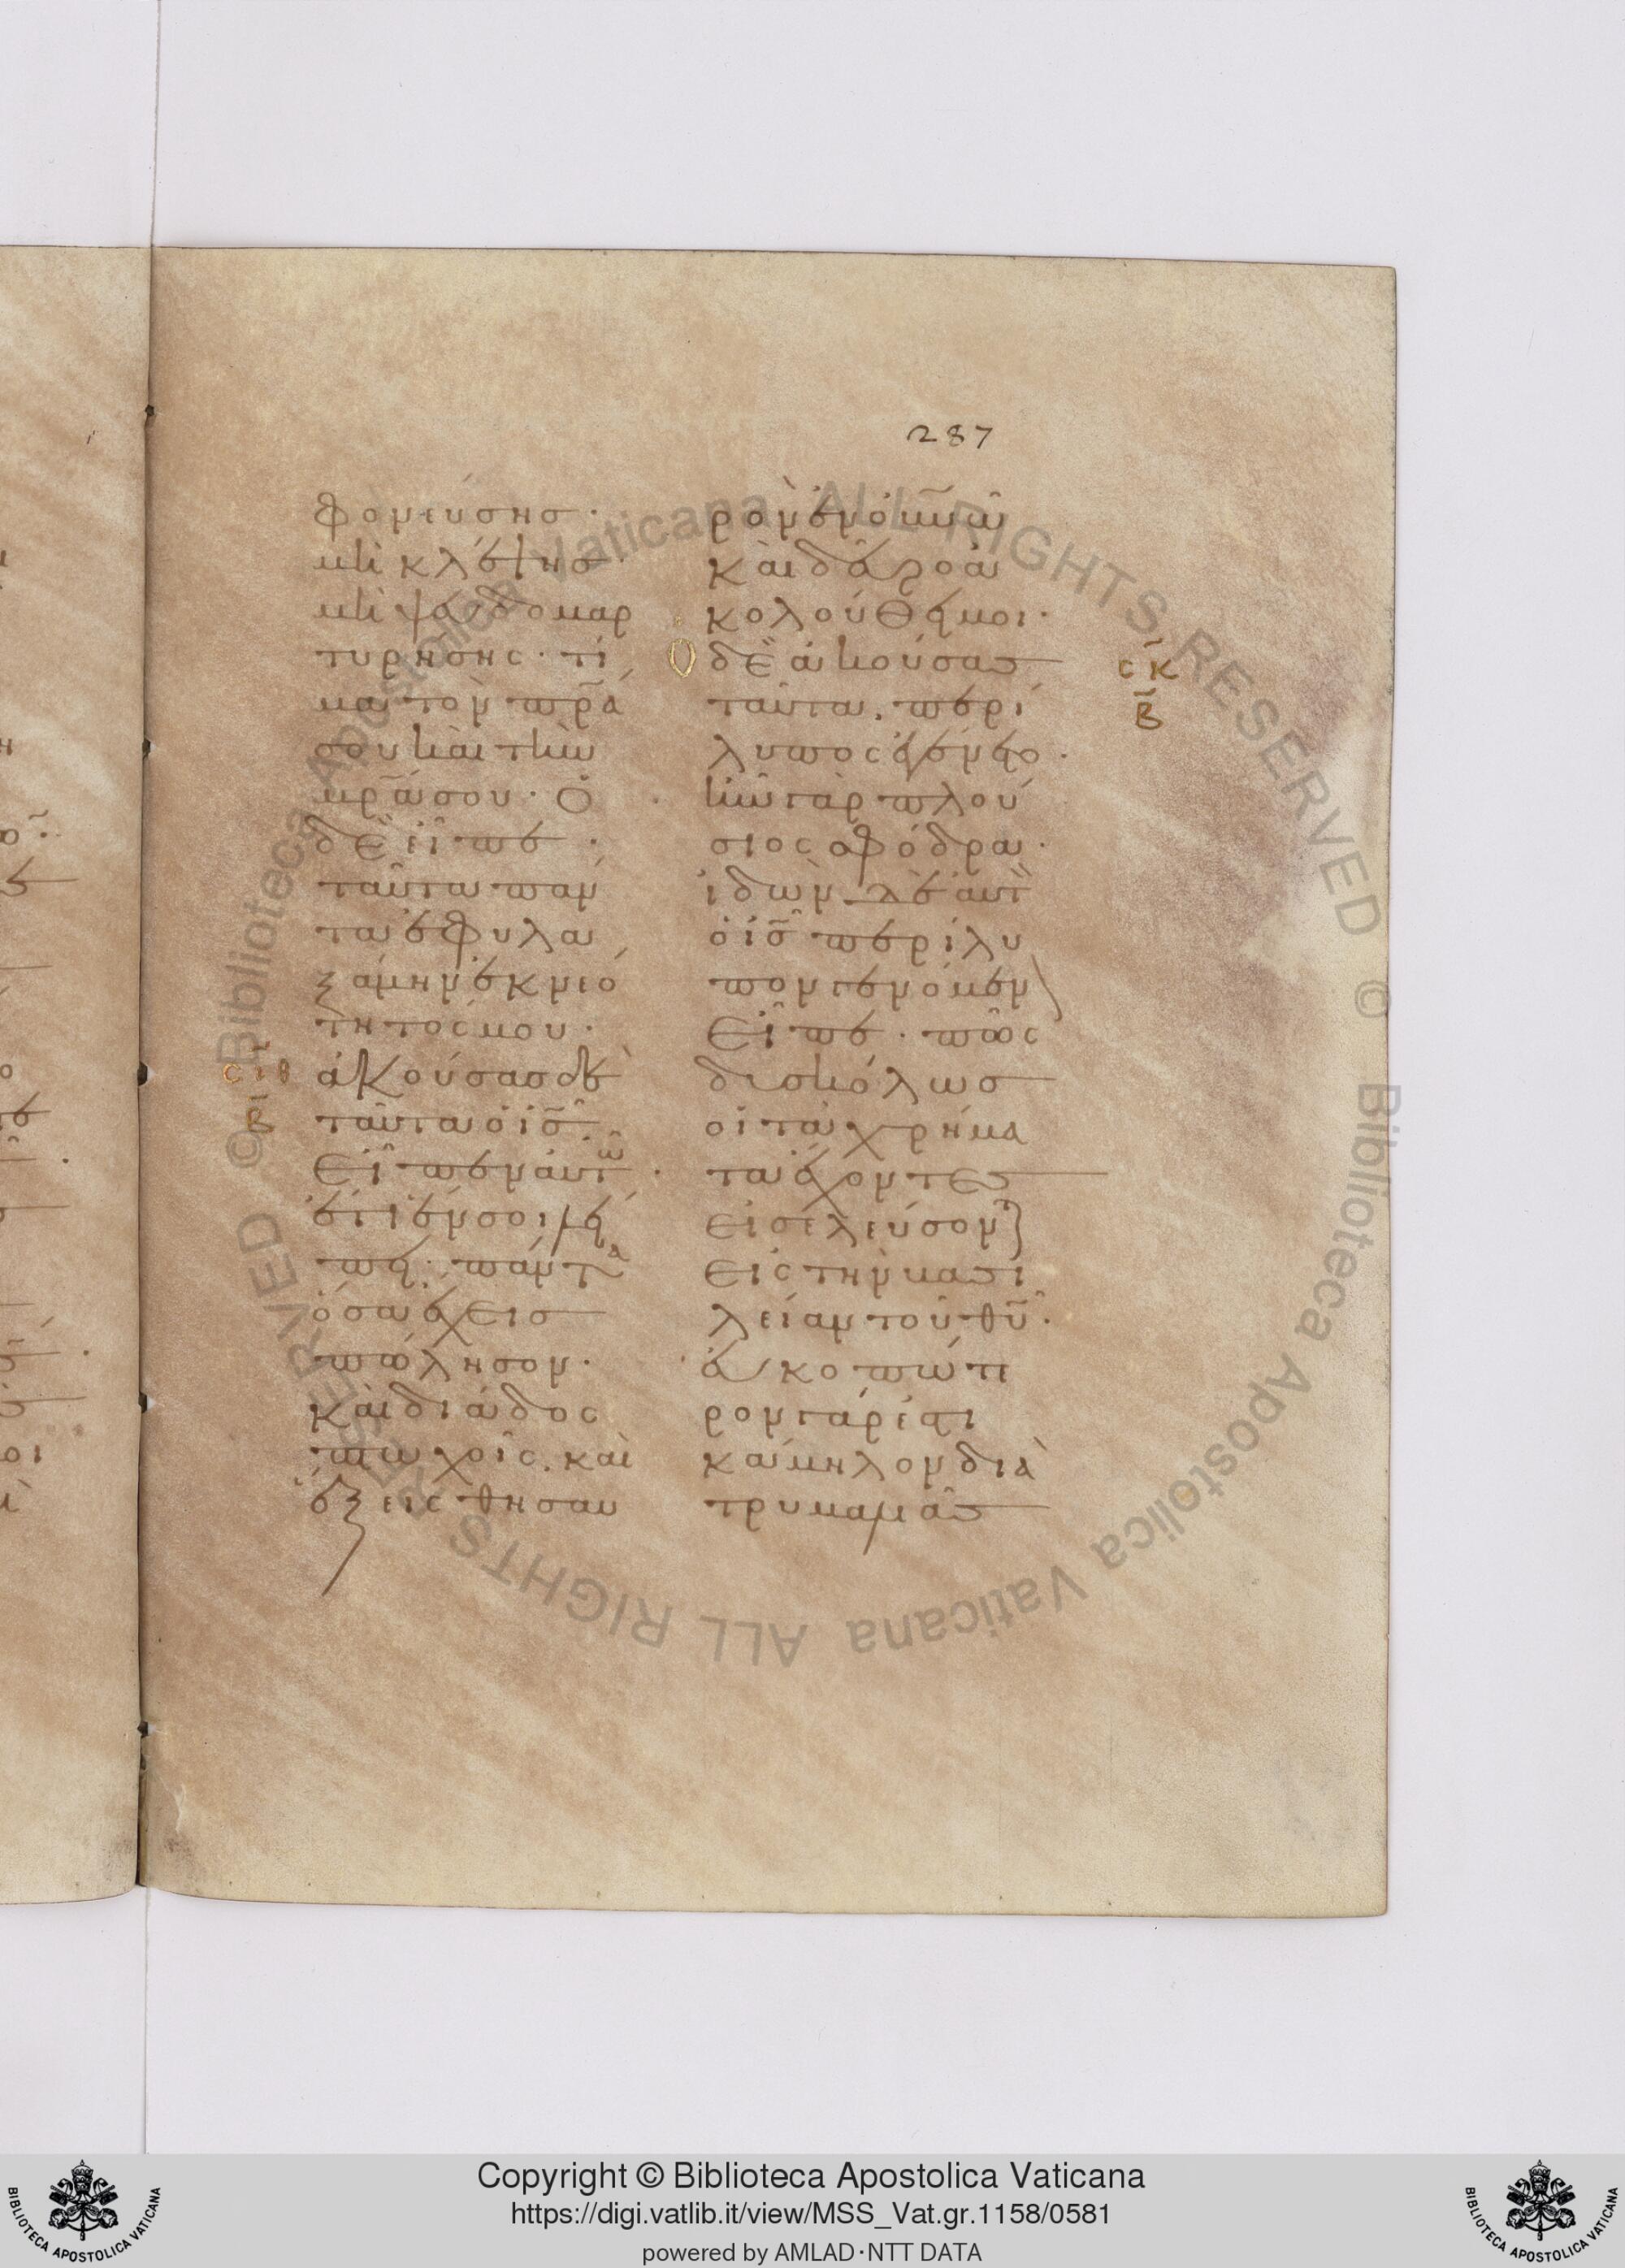 287
φονεύσης·
μὴ κλέψης·
μὴ ψευδομαρ
τυρήσης· τί
μα τὸν π̅ρ̅α
σου καὶ τὴν
μ̅ρ̅α σου· Ὁ
δὲ εἶπε·
ταῦτα πάν
τα ἐφυλα
ξάμην ἐκ νεό
τητός μου·
σ̅ι̅θ ἀκούσας δὲ
β ταῦτα ὁ ι̅σ̅·
εἶπεν αὐτῶ·
ἔτι ἕν σοι λεί
πει· πάντα
ὅσα ἔχεις
πώλησον·
καὶ διάδος
πτωχοῖς. καὶ
ἕξεις θησαυ
ρὸν ἐν ο̅υ̅ν̅ω
καὶ δεῦρο ἀ
κολούθει μοι·
Ὁ δὲ ἀκούσας σ̅κ
ταῦτα. περί β̅
λυπος ἐγένετο·
ἦν γὰρ πλού
σιος σφόδρα·
ἰδὼν δὲ αὐτ
ὁ ι̅σ̅ περίλυ
πον γενόμεν
εἶπε· πῶς
δυσκόλως
οἱ τὰ χρήμα
τα ἔχοντες
εἰσελεύσον
εἰς τὴν βασι
λείαν τοῦ θ̅υ̅·
εὐκοπώτε
ρον γάρ ἐστι
κάμηλον διὰ
τρυμαλιᾶς
© Biblioteca Apostolica Vaticana ALL RIGHTS RESERVED © Biblioteca Apostolica Vaticana ALL RIGHTS RESERVED
Copyright © Biblioteca Apostolica Vaticana
https://digi.vatlib.it/view/MSS_Vat.gr.1158/0581
powered by AMLAD·NTT DATA
BIBLIOTECA APOSTOLICA VATICANA
BIBLIOTECA APOSTOLICA VATICANA